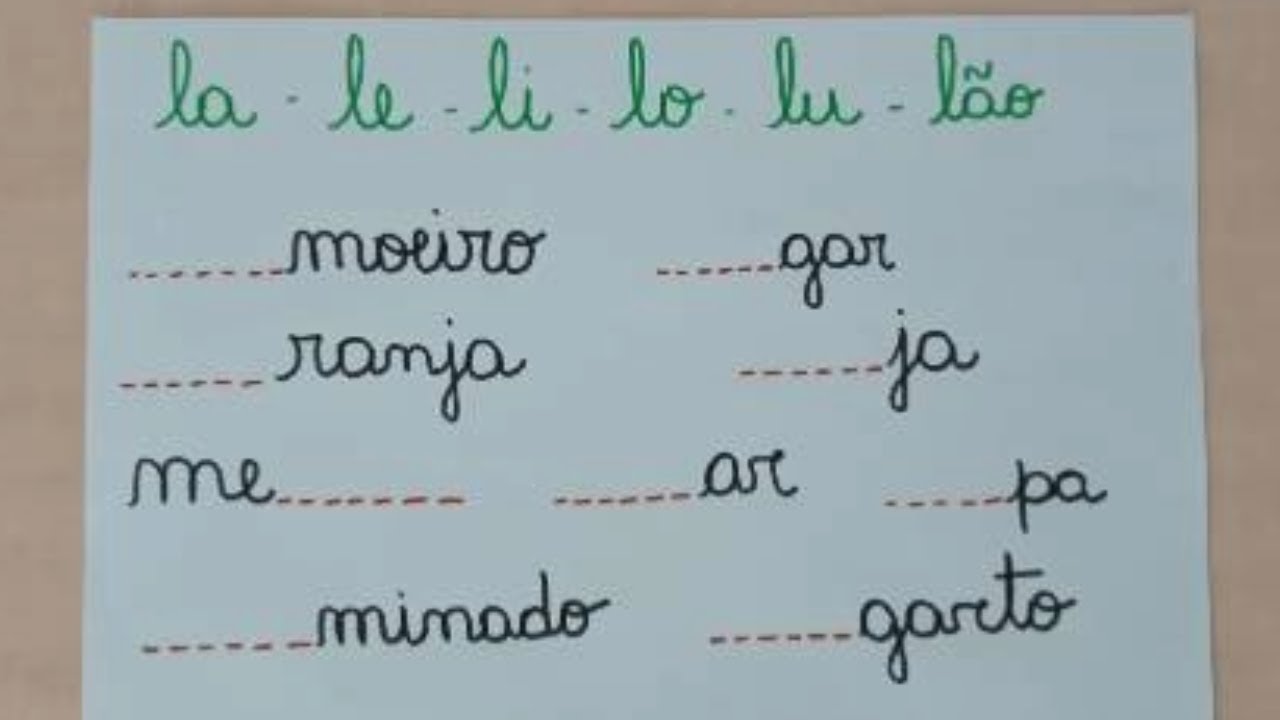 la - le - li - lo - lu - lão
------moeiro ------gar
------ranja ------ja
me------- ------ar -----pa
------minado ------garto